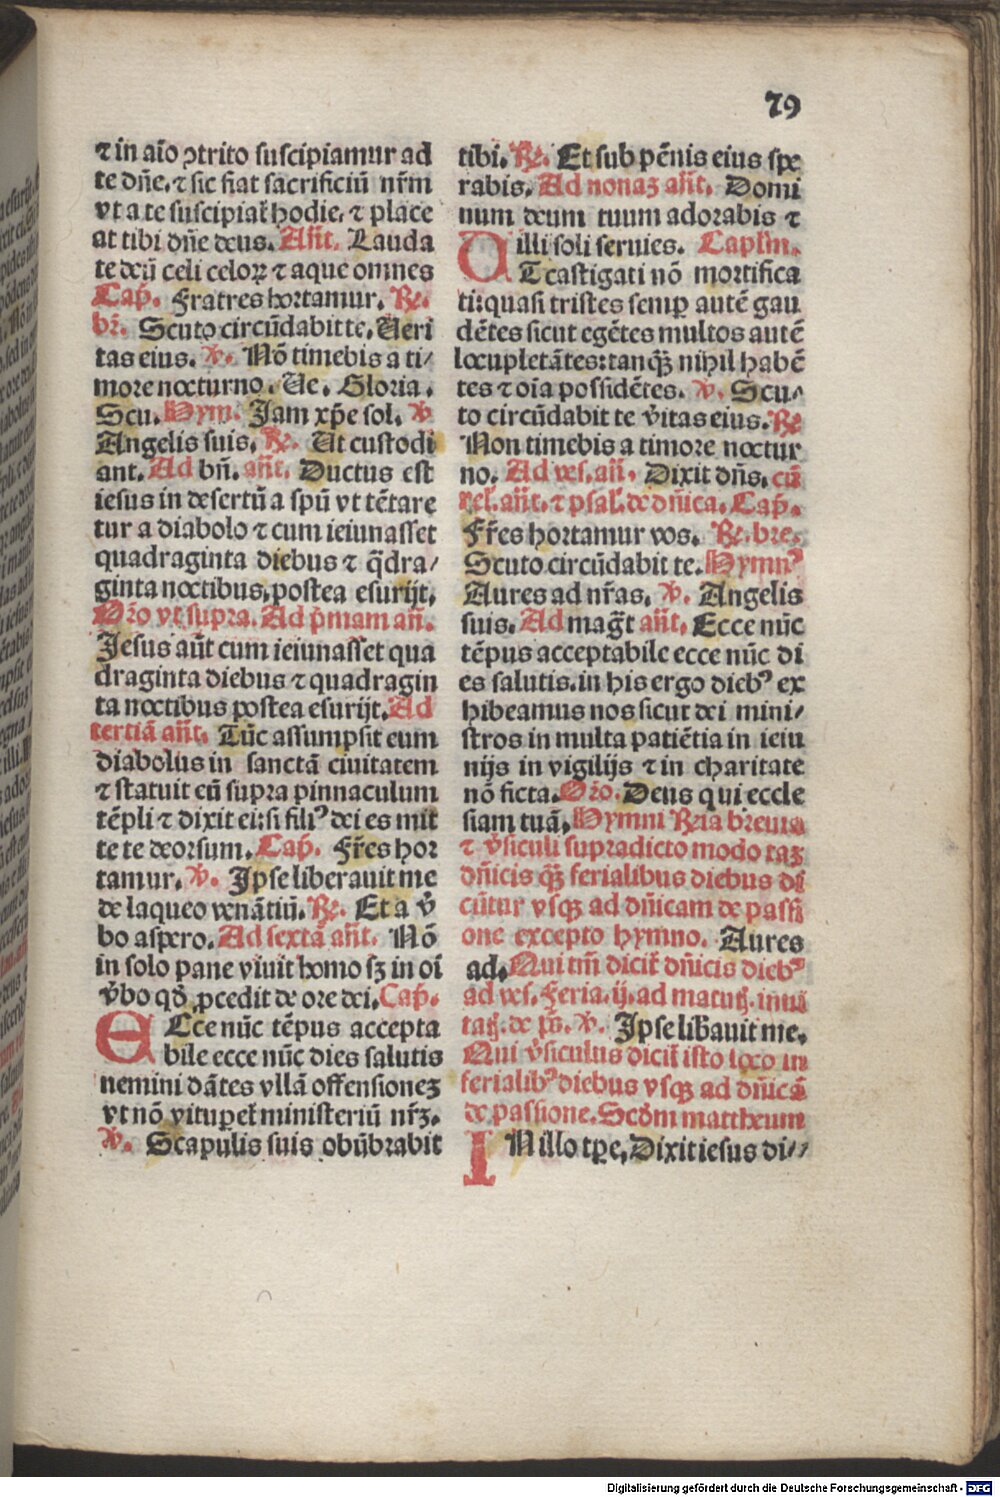 79
⁊ in aīo ↄtrito suscipiamur ad
te dn̄e. ⁊ sic fiat sacrificiū nr̄m
vt a te suscipiat᷑ hodie. ⁊ place
at tibi dn̄e deus. Añt. Lauda
te deū celi celoꝝ ⁊ aque omnes
Cap̄. Fratres hortamur. ℞.
br̄. Scuto circūdabit te. Ueri
tas eius. ℣. Nō timebis a ti/
more nocturno. Ue. Gloria.
Scu. Hym. Jam xp̄e sol. ℣
Angelis suis. ℞. Ut custodi
ant. Ad bn̄. añt. Ductus est
iesus in desertū a spū vt tētare
tur a diabolo ⁊ cum ieiunasset
quadraginta diebus ⁊ q̄dra/
ginta noctibus. postea esurijt.
Or̄o vt supra. Ad p̄mam añ.
Jesus aūt cum ieiunasset qua
draginta diebus ⁊ quadragin
ta noctibus postea esurijt. Ad
tertiā añt. Tūc assumpsit eum
diabolus in sanctā ciuitatem
⁊ statuit eū supra pinnaculum
tēpli ⁊ dixit ei: si filiꝰ dei es mit
te te deorsum. Cap̄. Fr̄es hor
tamur. ℣. Jpse liberauit me
de laqueo venātiū. ℞. Et a v̄
bo aspero. Ad sextā añt. Nō
in solo pane viuit homo sꝫ in oī
v̄bo qď ꝓcedit de ore dei. Cap̄.
ECce nūc tēpus accepta
bile ecce nūc dies salutis
nemini dātes vllā offensioneꝫ
vt nō vituperet᷑ ministeriū nr̄ꝫ.
℣. Scapulis suis obūbrabit
tibi. ℞. Et sub pēnis eius spe
rabis. Ad nonaꝫ añt. Domi
num deum tuum adorabis ⁊
illi soli seruies. Caplm̄.
UT castigati nō mortifica
ti: quasi tristes semꝑ autē gau
dētes sicut egētes multos autē
locupletātes: tanqꝫ̄ nihil habē
tes ⁊ oīa possidētes. ℣. Scu/
to circūdabit te v̄itas eius. ℞
Non timebis a timore noctur
no. Ad ves. añ. Dixit dn̄s. cū
rel̄. añt. ⁊ psal̄. de dn̄ica. Cap̄.
Fr̄es hortamur vos. ℞. bre.
Scuto circūdabit te. Hymnꝰ
Aures ad nr̄as. ℣. Angelis
suis. Ad mag̃t añt. Ecce nūc
tēpus acceptabile ecce nūc di
es salutis. in his ergo diebꝰ ex
hibeamus nos sicut dei mini/
stros in multa patiētia in ieiu
nijs in vigilijs ⁊ in charitate
nō ficta. Or̄o. Deus qui eccle
siam tuā. Hymni ℞ia breuia
⁊ v̄siculi supradicto modo taꝫ
dn̄icis qꝫ̄ ferialibus diebus di
cūtur vsqꝫ ad dn̄icam de passi
one excepto hymno. Aures
ad. Qui tm̄ dicit᷑ dn̄icis diebꝰ
ad ves. Feria. ij. ad matutꝭ. inui
tatꝭ. de ps̄. ℣. Jpse lib̄auit me.
Qui v̄siculus dicit᷑ isto loco in
ferialibꝰ diebus vsqꝫ ad dn̄icā
de passione. Scďm mattheum
IN illo tꝑe. Dixit iesus di//
Digitalisierung gefördert durch die Deutsche Forschungsgemeinschaft - DFG